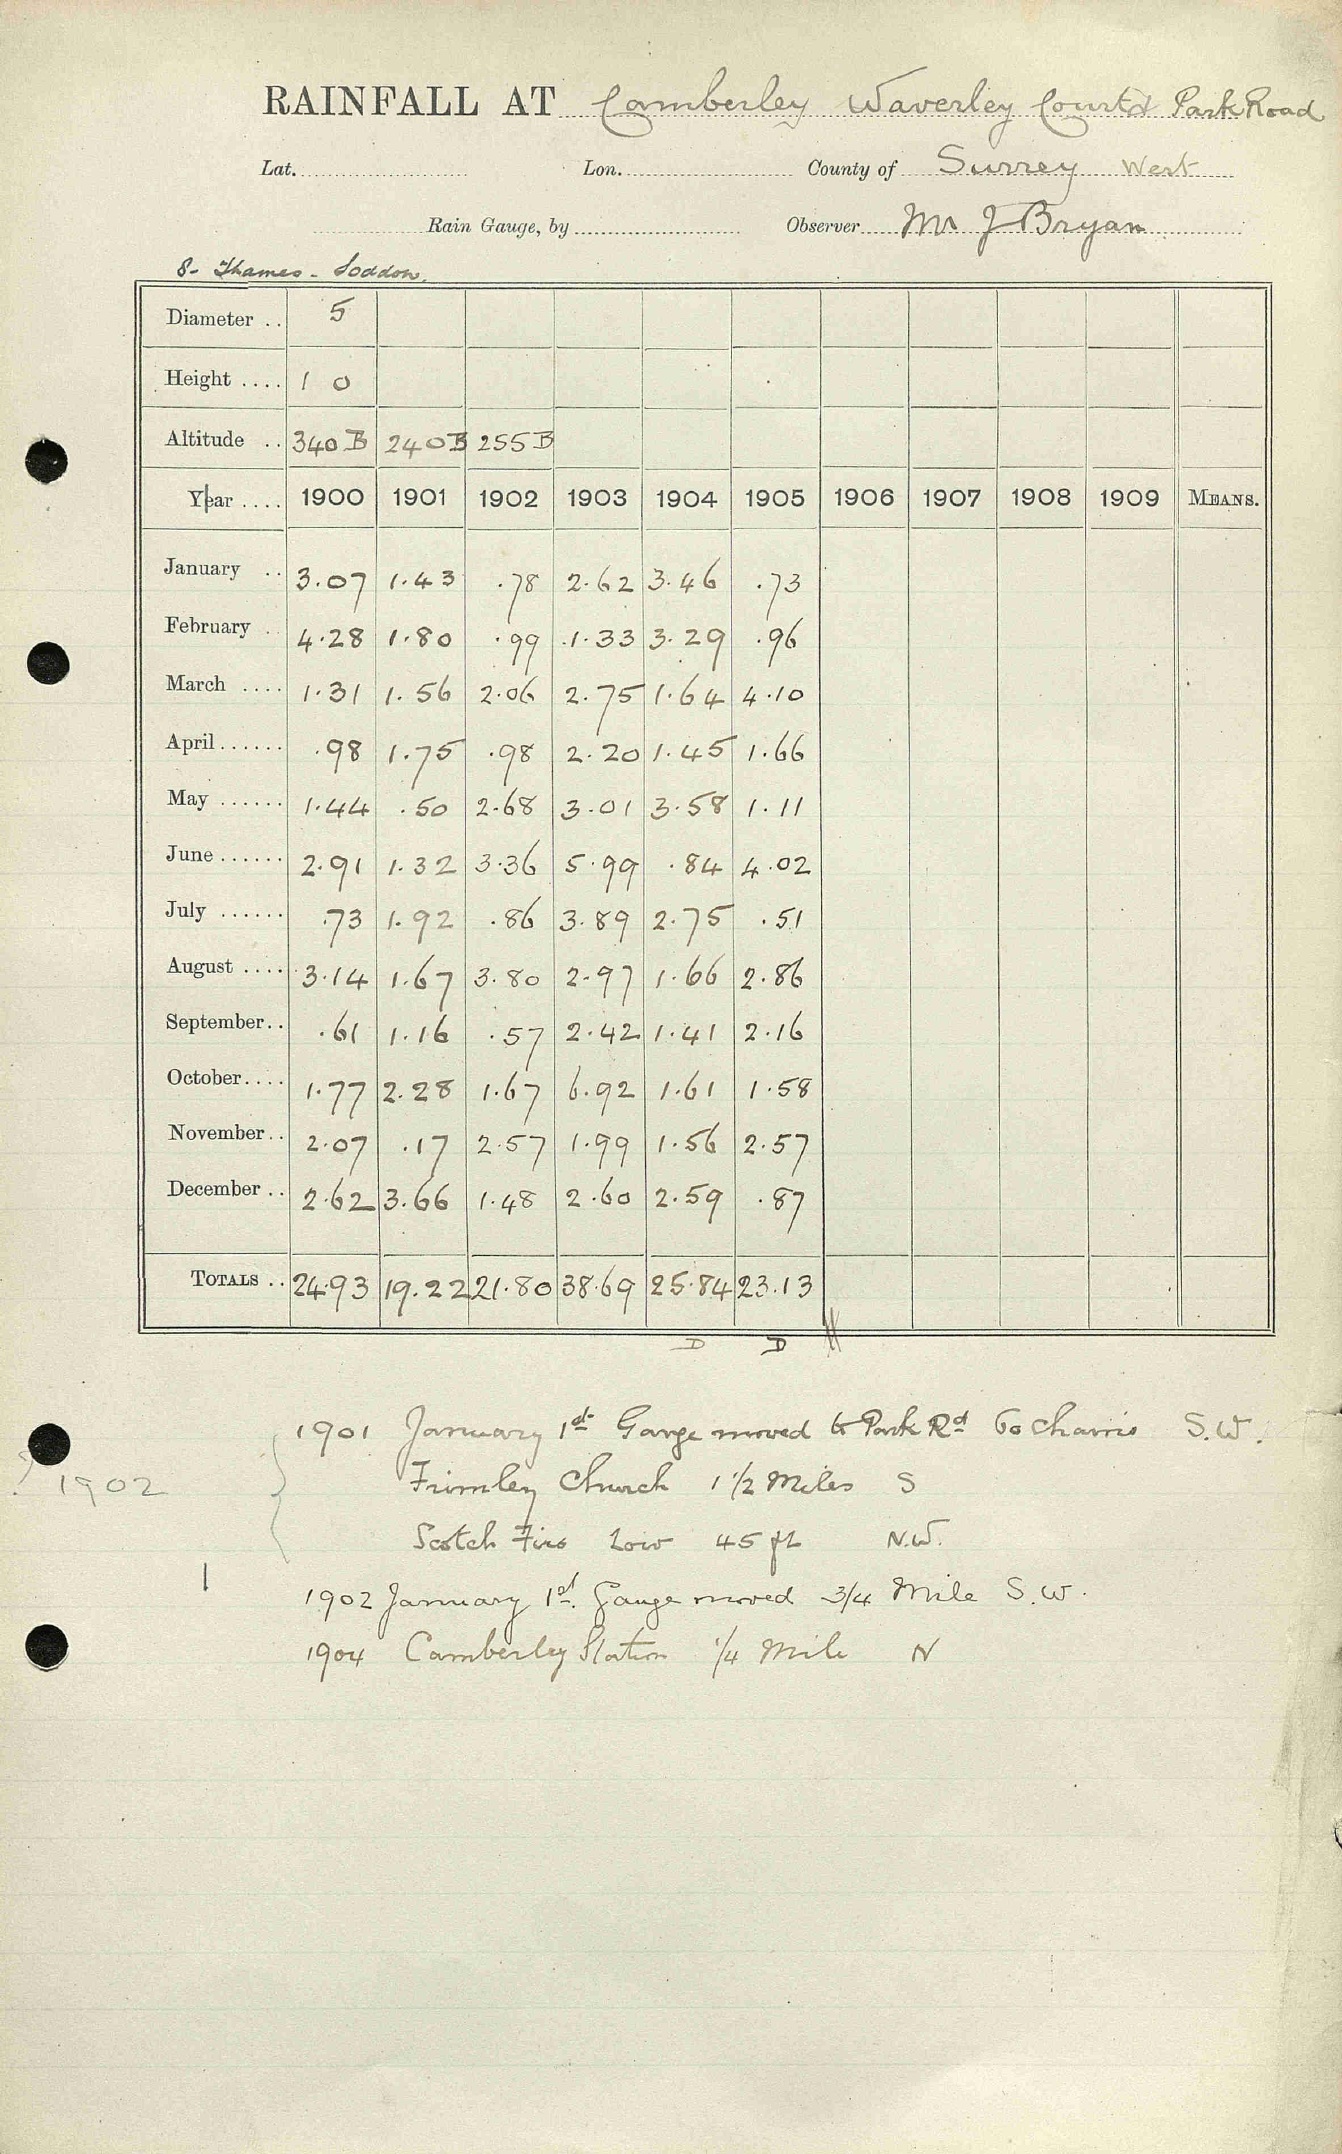 RAINFALL AT Camberley Waverley Court & Park Road
Lat. Lon. County of Surrey West
Rain Gauge, by Observer Mr J Bryan
8- Thames - Loddon.
Diameter .. 5
Height .... 1 0
Altitude .. 340 B 240 B 255 B
Year .... 1900 1901 1902 1903 1904 1905 1906 1907 1908 1909 MEANS.
January .. 3.07 1.43 .78 2.62 3.46 .73
February .. 4.28 1.80 .99 1.33 3.29 .96
March .... 1.31 1.56 2.06 2.75 1.64 4.10
April...... .98 1.75 .98 2.20 1.45 1.66
May ...... 1.44 .50 2.68 3.01 3.58 1.11
June ...... 2.91 1.32 3.36 5.99 .84 4.02
July ...... .73 1.92 .86 3.89 2.75 .51
August .... 3.14 1.67 3.80 2.97 1.66 2.86
September.. .61 1.16 .57 2.42 1.41 2.16
October.... 1.77 2.28 1.67 6.92 1.61 1.58
November.. 2.07 .17 2.57 1.99 1.56 2.57
December .. 2.62 3.66 1.48 2.60 2.59 .87
TOTALS .. 24.93 19.22 21.80 38.69 25.84 23.13
D D
1901 January 1st Gauge moved to Park Rd 60 chains S.W.
? 1902
Frimley Church 1 1/2 Miles S
Scotch Firs Low 45 ft N.W.
1902 January 1st. Gauge moved 3/4 Mile S.W.
1904 Camberley Station 1/4 Mile N